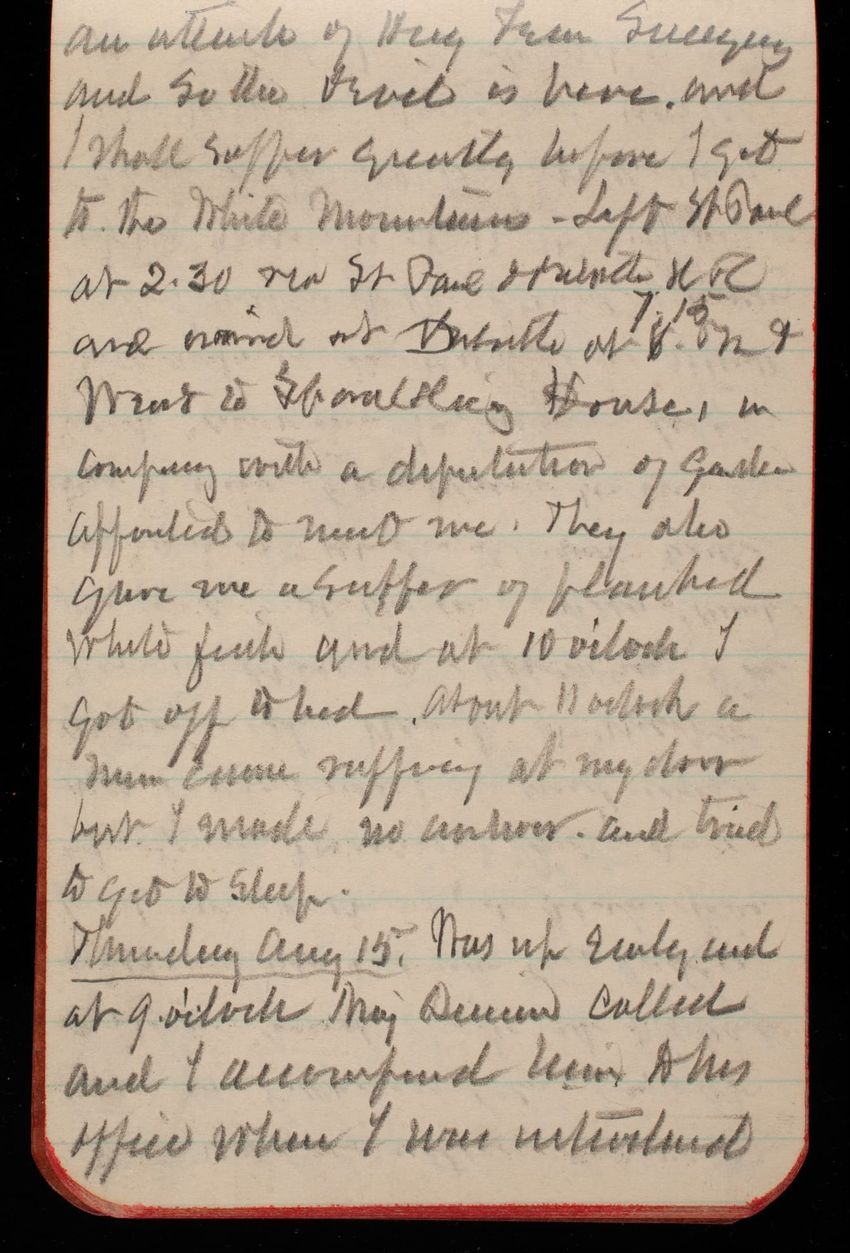 an attack of Hay Fever Sneezing
and So the Devil is here. and
I shall Suffer greatly before I get
to the White Mountains - Left St Paul
at 2.30 via St Paul & Duluth RR
and arrived at Duluth at 7.15 &
Went to Spaulding House, in
company with a deputation of
appointed to meet me. They also
gave me a Supper of planked
White fish and at 10 o'clock I
got off to bed. About 11 oclock a
man came rapping at my door
but I made no answer. and tried
to get to Sleep.
Thursday Aug 15. Was up Early and
at 9 o'clock Maj called
and I accompanied him to his
office where I was introduced